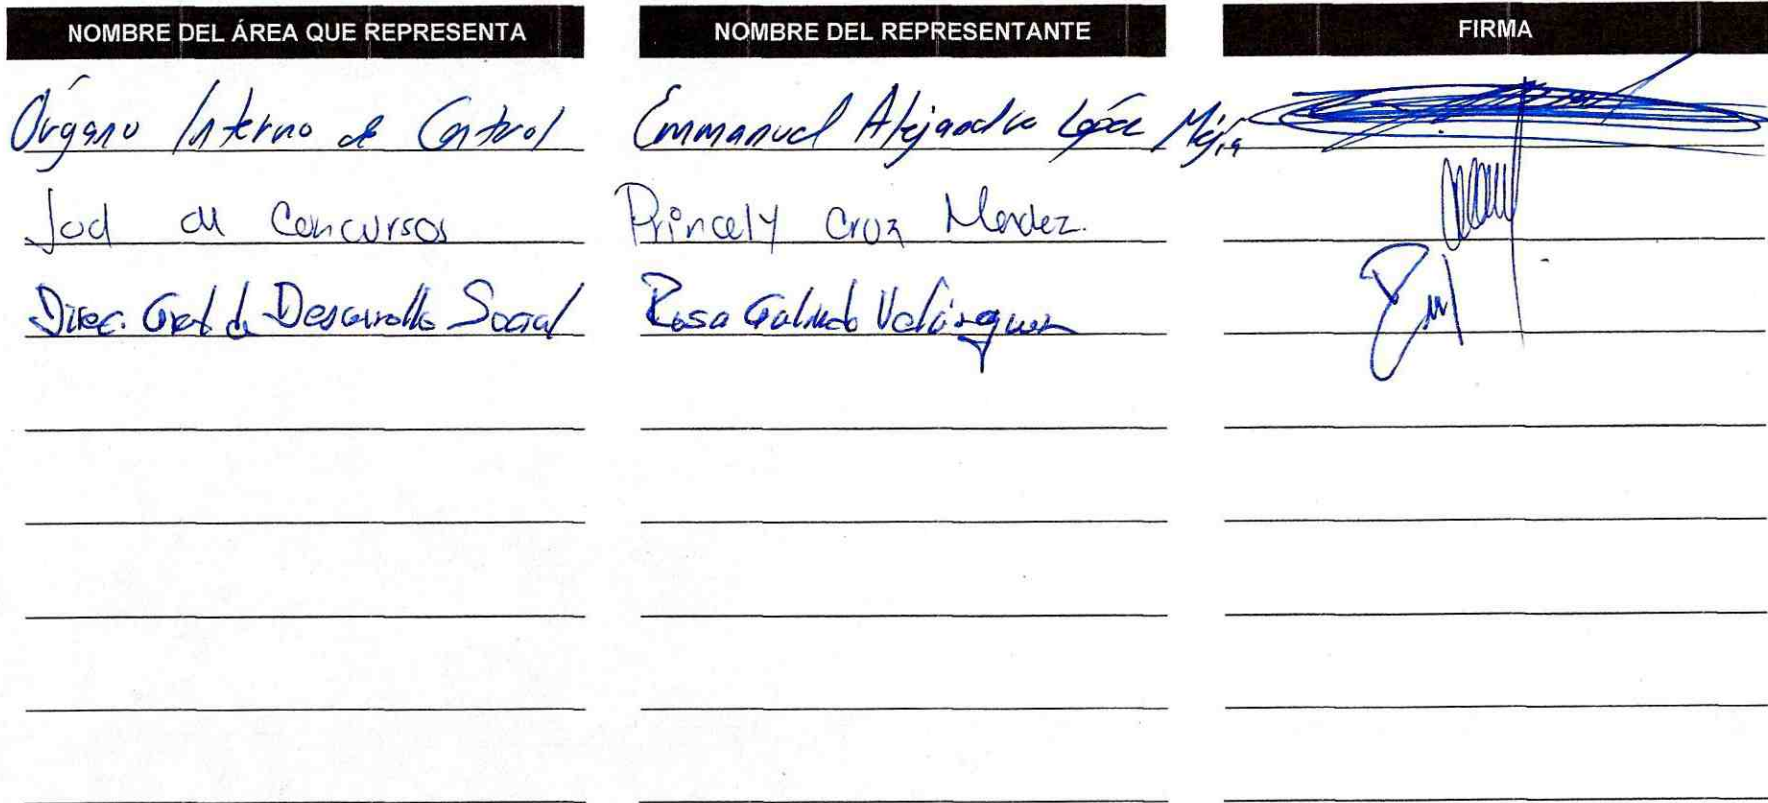 NOMBRE DEL ÁREA QUE REPRESENTA NOMBRE DEL REPRESENTANTE FIRMA
Órgano Interno de Control Emmanuel Alejandro López Mejía
Jud de Concursos Princely Cruz Mendez.
Direc. Gral de Desarrollo Social Rosa Galindo Velázquez